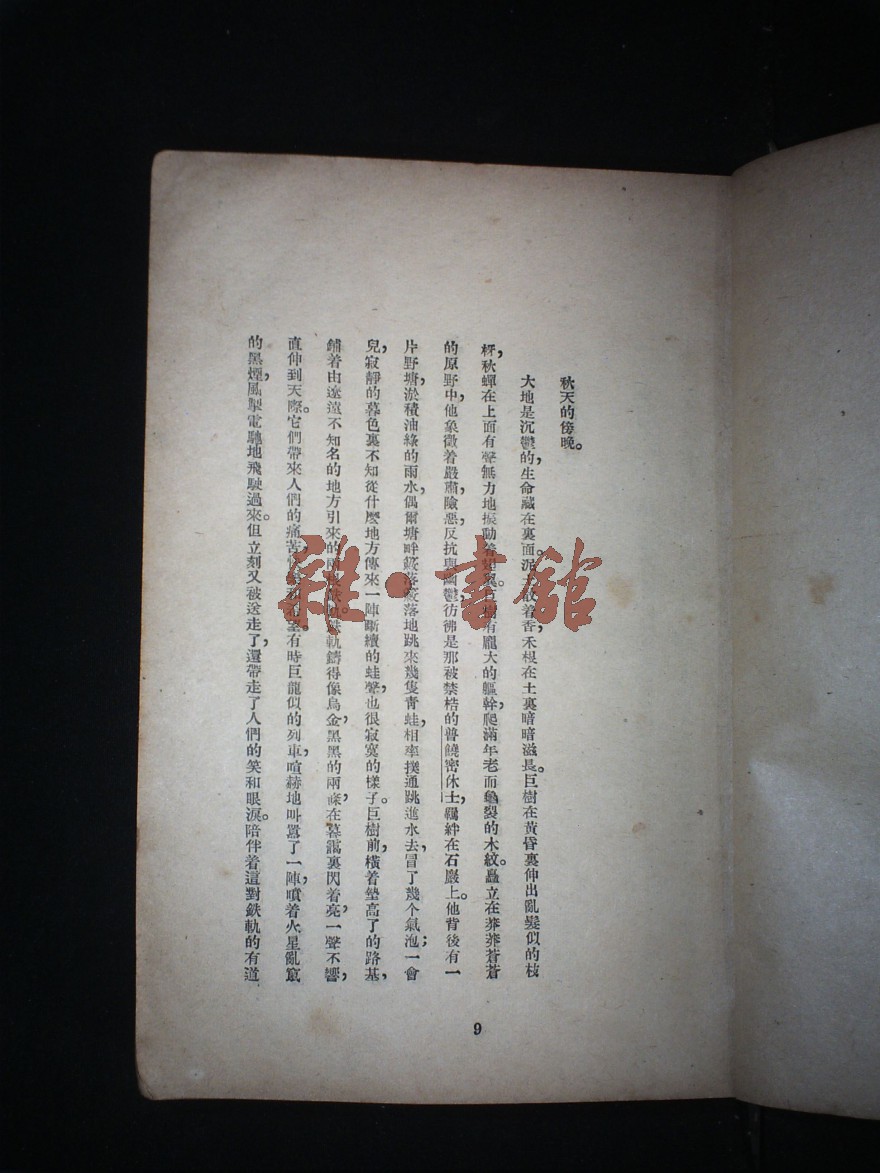 秋天的傍晚。
大地是沉鬱的，生命藏在裏面。泥土放着香，禾根在土裏暗暗滋長。巨樹在黃昏裏伸出亂髮似的枝
枒，秋蟬在上面有聲無力地振動着翅翼。巨樹有龐大的軀幹，爬滿年老而龜裂的木紋。矗立在莽莽蒼蒼
的原野中，他象徵着嚴肅，險惡，反抗與幽鬱，彷彿是那被禁梏的普饒密休士，羈絆在石巖上。他背後有一
片野塘，淤積油綠的雨水，偶爾塘畔疲落疲落地跳來幾隻青蛙，相率撲通跳進水去，冒了幾个氣泡；一會
兒，寂靜的暮色裏不知從什麼地方傳來一陣斷續的蛙聲，也很寂寞的樣子。巨樹前，橫着墊高了的路基，
鋪着由遼遠不知名的地方引來的兩根鉄軌。鉄軌鑄得像烏金，黑黑的兩條，在暮靄裏閃着亮，一聲不響，
直伸到天際。它們帶來人們的痛苦、和希望。有時巨龍似的列車，喧赫地叫囂了一陣，噴着火星亂竄
的黑煙，風掣電馳地飛駛過來。但立刻又被送走了，還帶走了人們的笑和眼淚。陪伴着這對鉄軌的有道
9
雜·書館